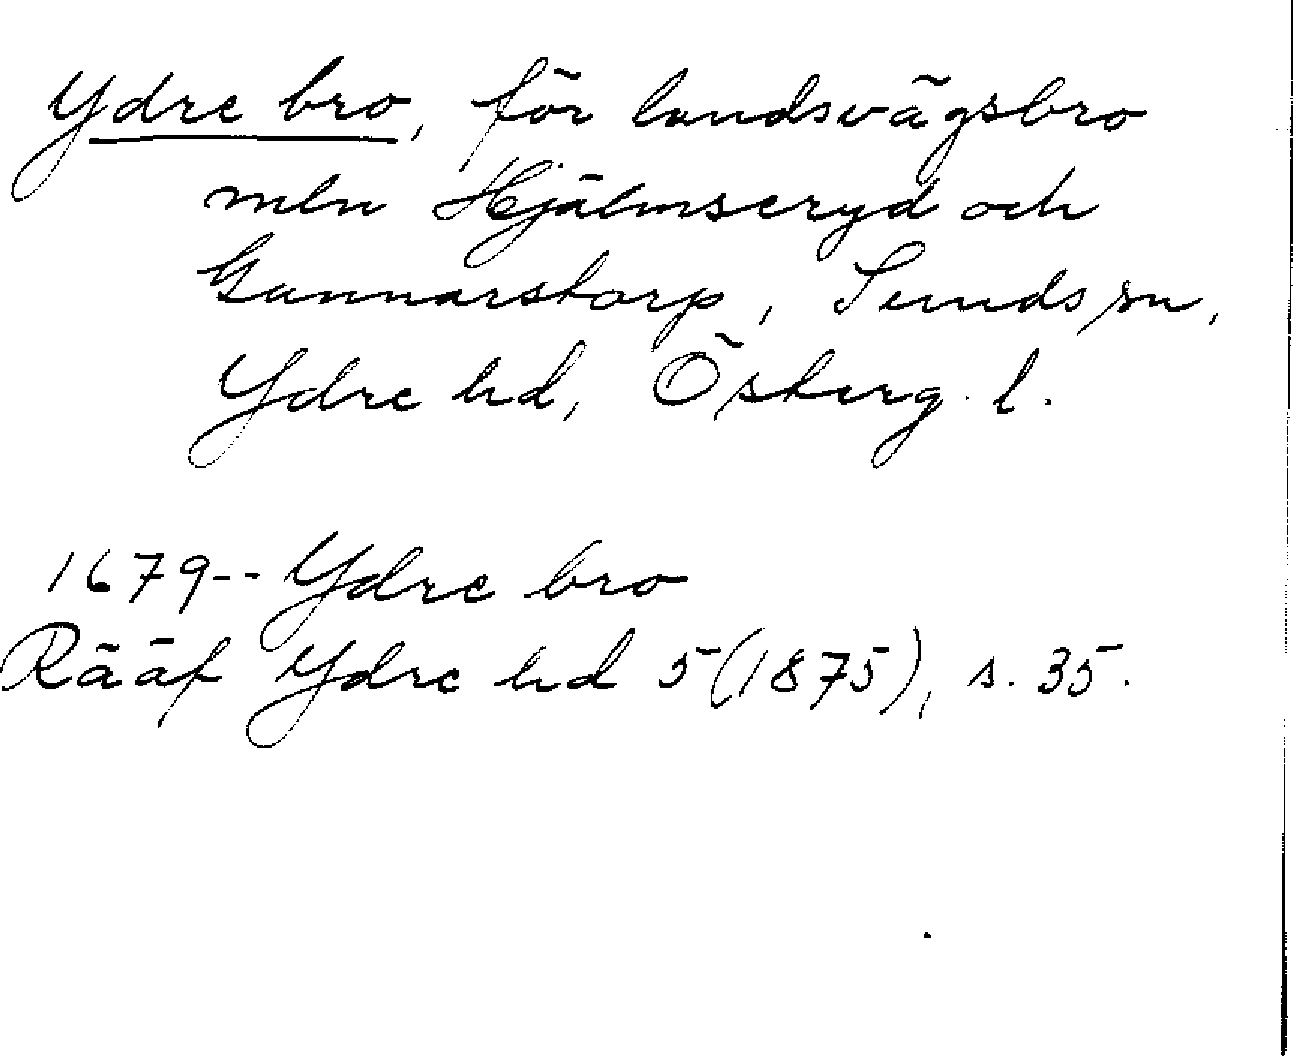 Ydre bro, för landsvägsbro
mln Hjälmseryd och
Gunnarstorp, Sunds sn,
Ydre hd, Österg. l.
1679-- Ydre bro
Rääf Ydre hd 5 (1875), s. 35.